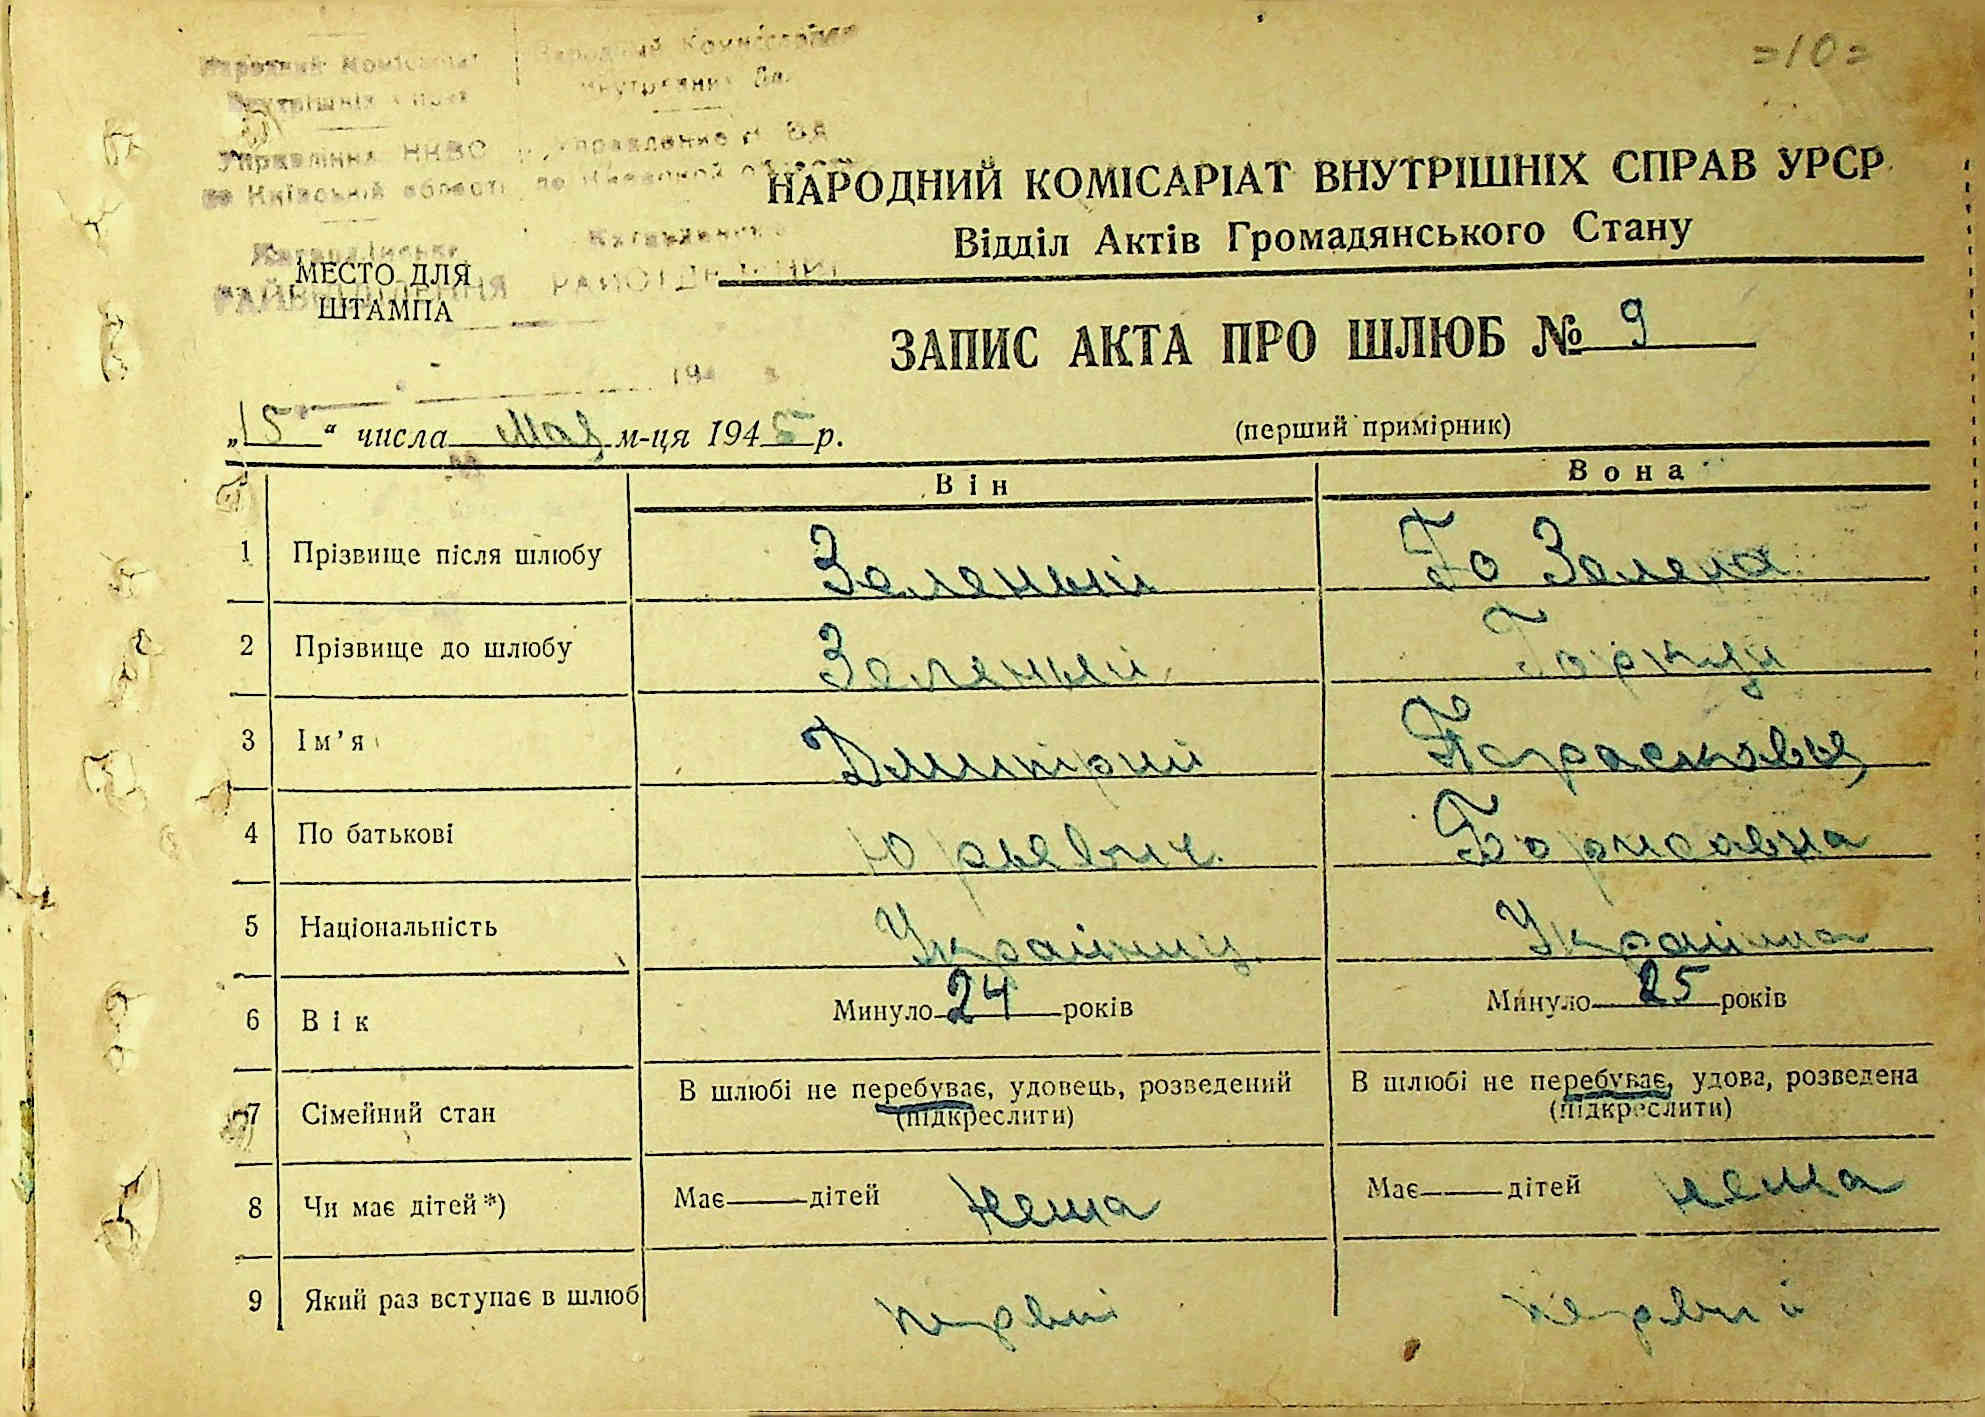 =10=
Народний Комісаріат
Внутрішніх Справ
Управління НКВС
по Київській області
Народный Комиссариат
Внутренних Дел
Управление НКВД
по Киевской области
МЕСТО ДЛЯ
ШТАМПА
НАРОДНИЙ КОМІСАРІАТ ВНУТРІШНІХ СПРАВ УРСР
Відділ Актів Громадянського Стану
ЗАПИС АКТА ПРО ШЛЮБ № 9
„15“ числа мая м-ця 1945 р.
(перший примірник)
Він Вона
1 Прізвище після шлюбу Зеленый Го Зелена
2 Прізвище до шлюбу Зеленый Горкун
3 Ім’я Дмитрий Парасковья
4 По батькові Юрьевич Борисовна
5 Національність Українец Українка
6 Вік Минуло 24 років Минуло 25 років
7 Сімейний стан В шлюбі не перебуває, удовець, розведений В шлюбі не перебуває, удова, розведена
(підкреслити) (підкреслити)
8 Чи має дітей*) Має дітей нема Має дітей нема
9 Який раз вступає в шлюб первий первий